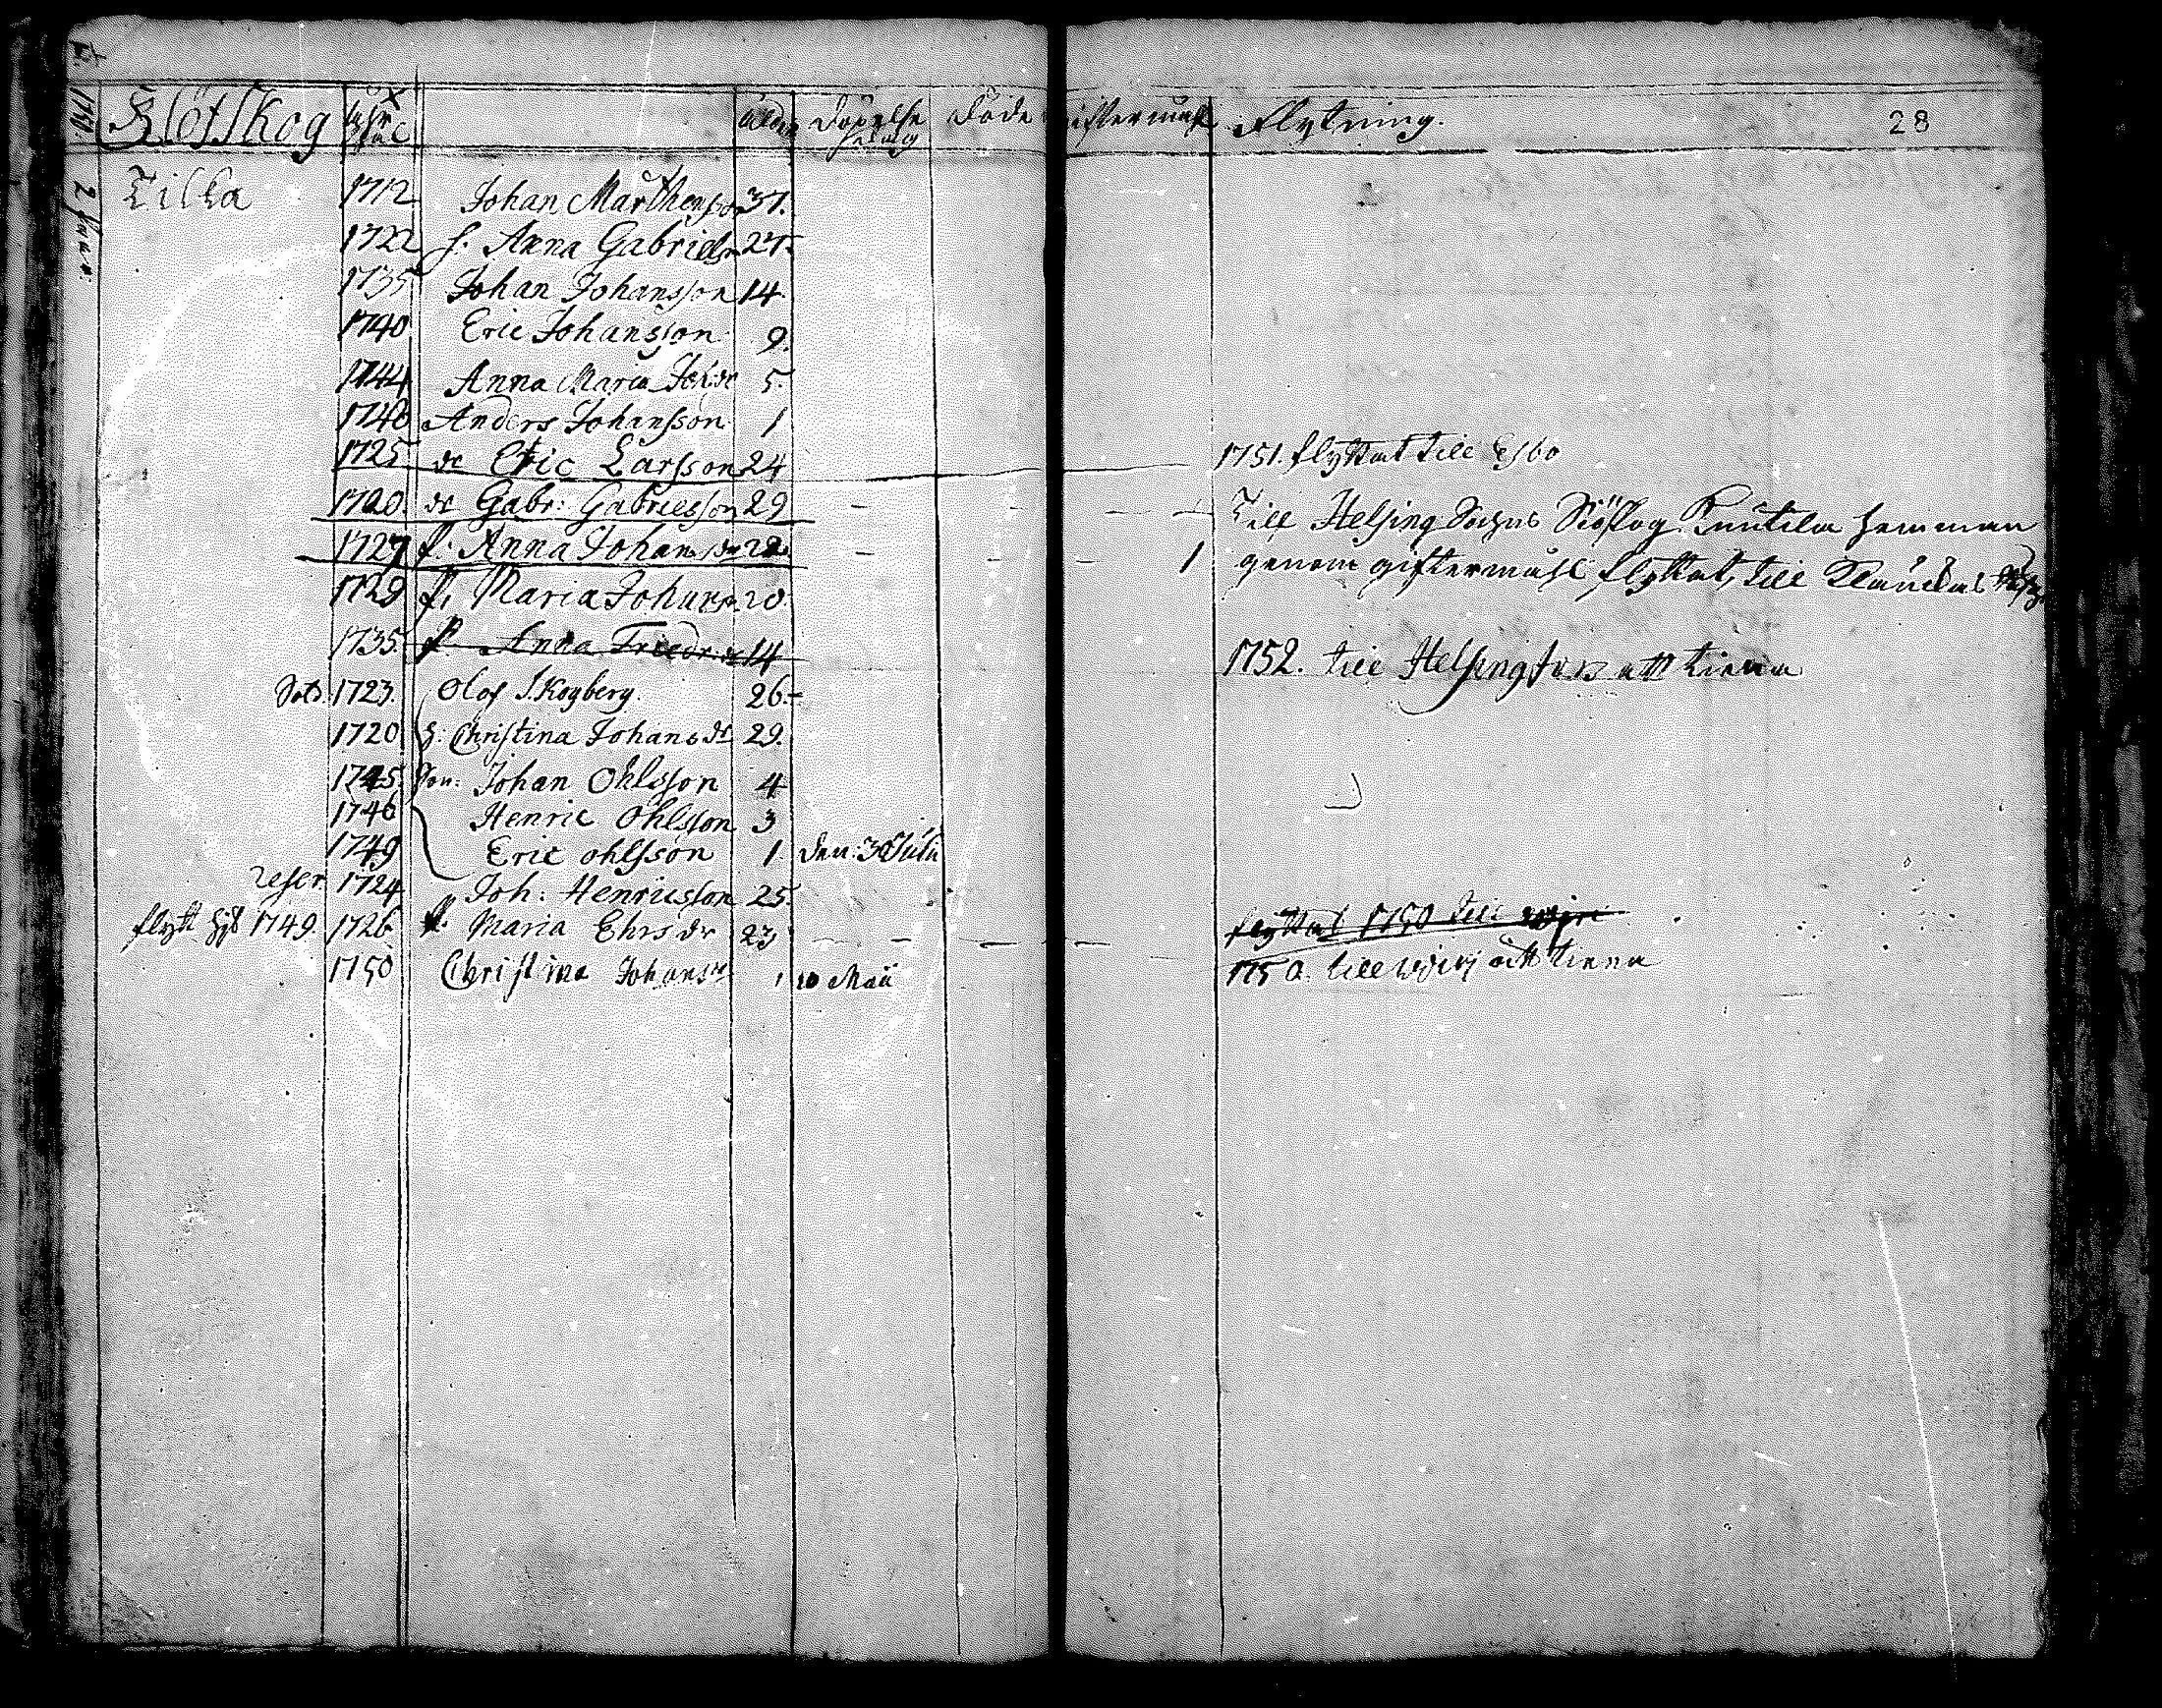 1751. Klötskog ålder döpelse döde giftermåhl flytning. 28
Tilka 1712 Johan Marthensson 37.
1722 h. Anna Gabrielsdr 27.
1735 Johan Johansson 14.
1740 Eric Johansson 9.
1744 Anna Maria Joh:dr 5.
1748 Anders Johansson 1
1725 dr Eric Larsson 24 1751. flyttat till Esbo
1720. dr Gabr: Gabrielsson 29 Till Helsing Sochns Siöskog Knutila hemman
1727 p. Anna Johansdr 22. 1 genom giftermåhl flyttat, till Klaukal
1729 p. Maria Johansdr 20.
1735. p. Anna Friedr:dr 14 1752. till Helsingfors att tiena
Sold. 1723. Olof Skogberg. 26.
1720 h: Christina Johansdr 29.
1745. Son: Johan Ohlsson 4
1746 Henric Ohlsson 3
1749 Eric ohlsson 1. den: 30 Julii
reser. 1724 Joh: Henricsson 25.
flytt hit 1749. 1726 p. Maria Ehrsdr 23 flyttat 1750 till
1750 Christina Johansdr 1 10 Maii 1750. till att tiena